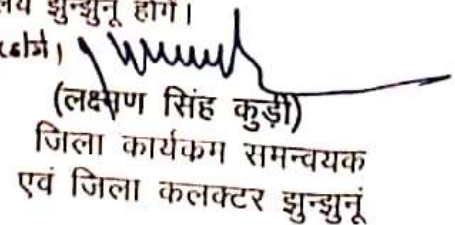 झुन्झुनू होंगे।
(लक्ष्मण सिंह कुड़ी)
जिला कार्यकम समन्वयक
एवं जिला कलक्टर झुन्झुनूं